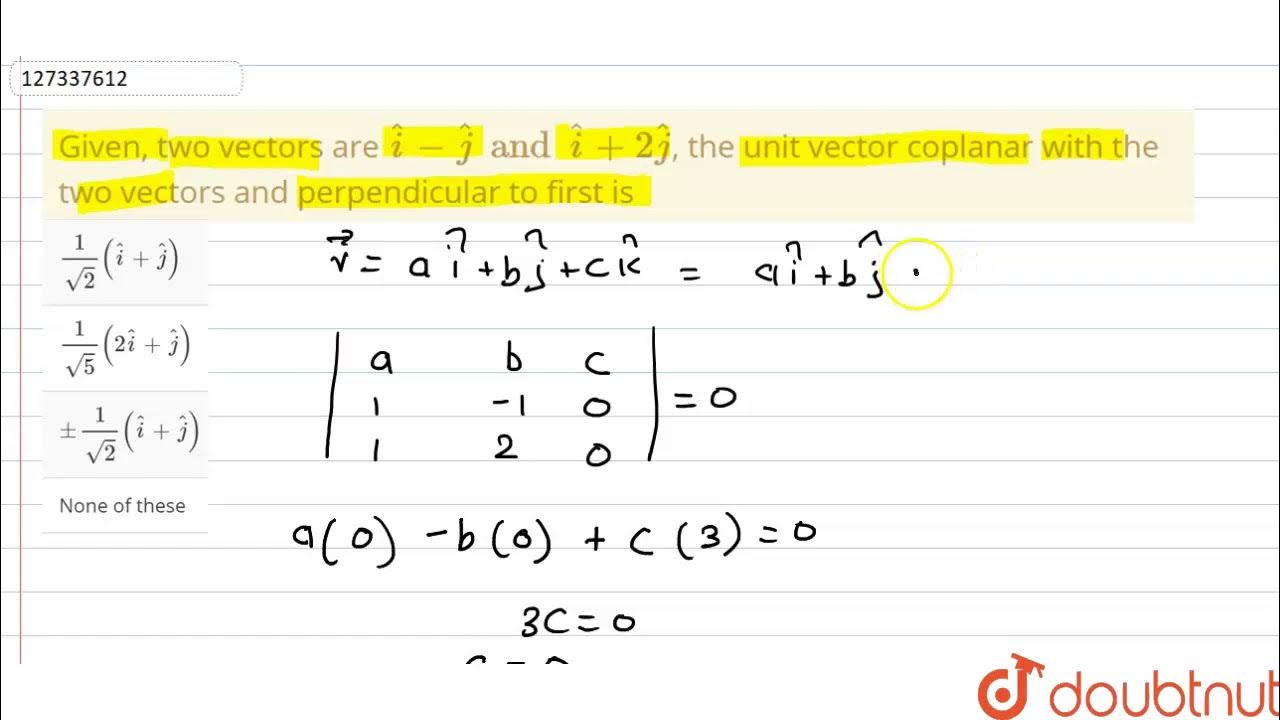 127337612
Given, two vectors are î − ĵ and î + 2ĵ, the unit vector coplanar with the
two vectors and perpendicular to first is
1/√2 (î + ĵ)
1/√5 (2î + ĵ)
± 1/√2 (î + ĵ)
None of these
r⃗ = a î + b ĵ + c k̂ = a î + b ĵ
| a b c |
| 1 -1 0 | = 0
| 1 2 0 |
a(0) - b(0) + c(3) = 0
3c = 0
doubtnut